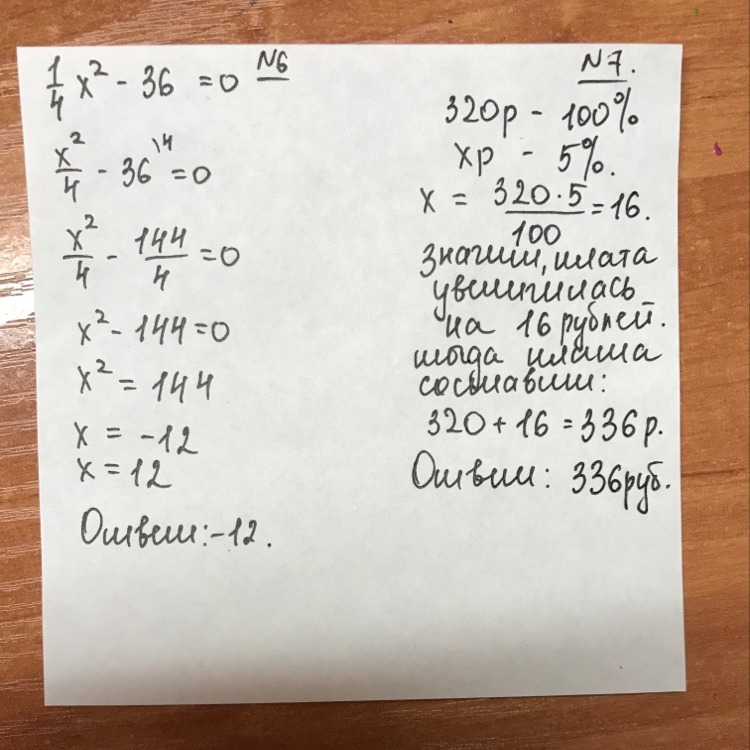 N6
1/4 x² - 36 = 0
x²/4 - 36\4 = 0
x²/4 - 144/4 = 0
x² - 144 = 0
x² = 144
x = -12
x = 12
Ответ: -12.
N7.
320р - 100%
хр - 5%.
x = 320·5/100 = 16.
Значит, плата
увеличилась
на 16 рублей.
тогда плата
составит:
320 + 16 = 336 р.
Ответ: 336 руб.